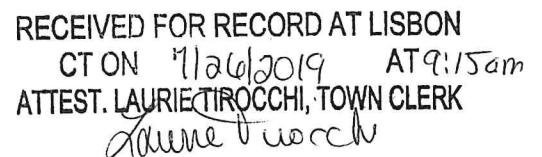 RECEIVED FOR RECORD AT LISBON
CT ON 7/26/2019 AT 9:15am
ATTEST. LAURIE TIROCCHI, TOWN CLERK
Laurie Tirocchi